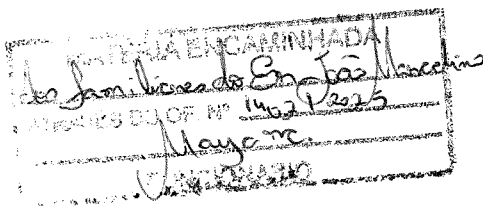 MATÉRIA ENCAMINHADA
aos familiares do En-João Marcelino
ATRAVÉS DO OF. Nº 1402 / 2025
Mayara.
FUNCIONÁRIO